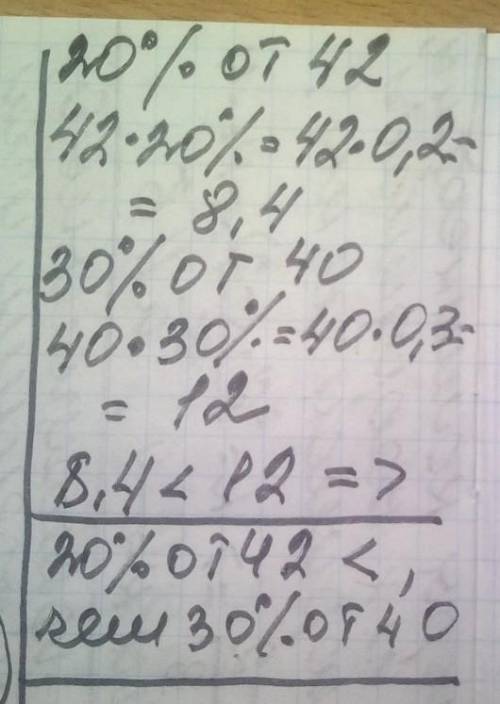 20% от 42
42·20%=42·0,2=
= 8,4
30% от 40
40·30%=40·0,3=
= 12
8,4 < 12 =>
20% от 42 <,
чем 30% от 40